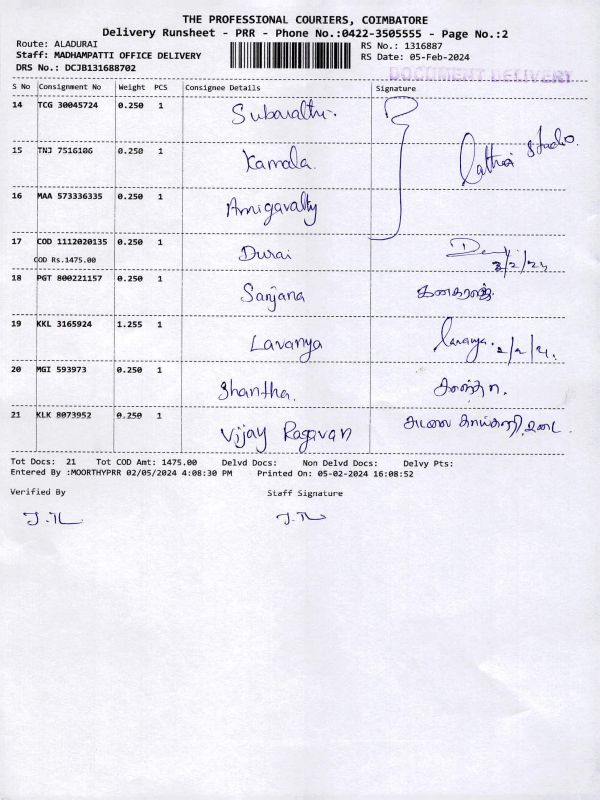 THE PROFESSIONAL COURIERS, COIMBATORE
Delivery Runsheet - PRR - Phone No.:0422-3505555 - Page No.:2
Route: ALADURAI
RS No.: 1316887
Staff: MADHAMPATTI OFFICE DELIVERY
RS Date: 05-Feb-2024
DRS No.: DCJB131688702
DOCUMENT DELIVERY
S No Consignment No Weight PCS Consignee Details Signature
14 TCG 30045724 0.250 1 Subarathi.
15 TNJ 7516106 0.250 1 Kamala. Studio.
16 MAA 573336335 0.250 1
17 COD 1112020135 0.250 1 Durai
COD Rs.1475.00
18 PGT 800221157 0.250 1 Sanjana கனகராஜ்.
19 KKL 3165924 1.255 1 Lavanya Lavanya.
20 MGI 593973 0.250 1 Shantha.
21 KLK 8073952 0.250 1 Vijay Ragavan
Tot Docs: 21 Tot COD Amt: 1475.00 Delvd Docs: Non Delvd Docs: Delvy Pts:
Entered By :MOORTHYPRR 02/05/2024 4:08:30 PM Printed On: 05-02-2024 16:08:52
Verified By Staff Signature